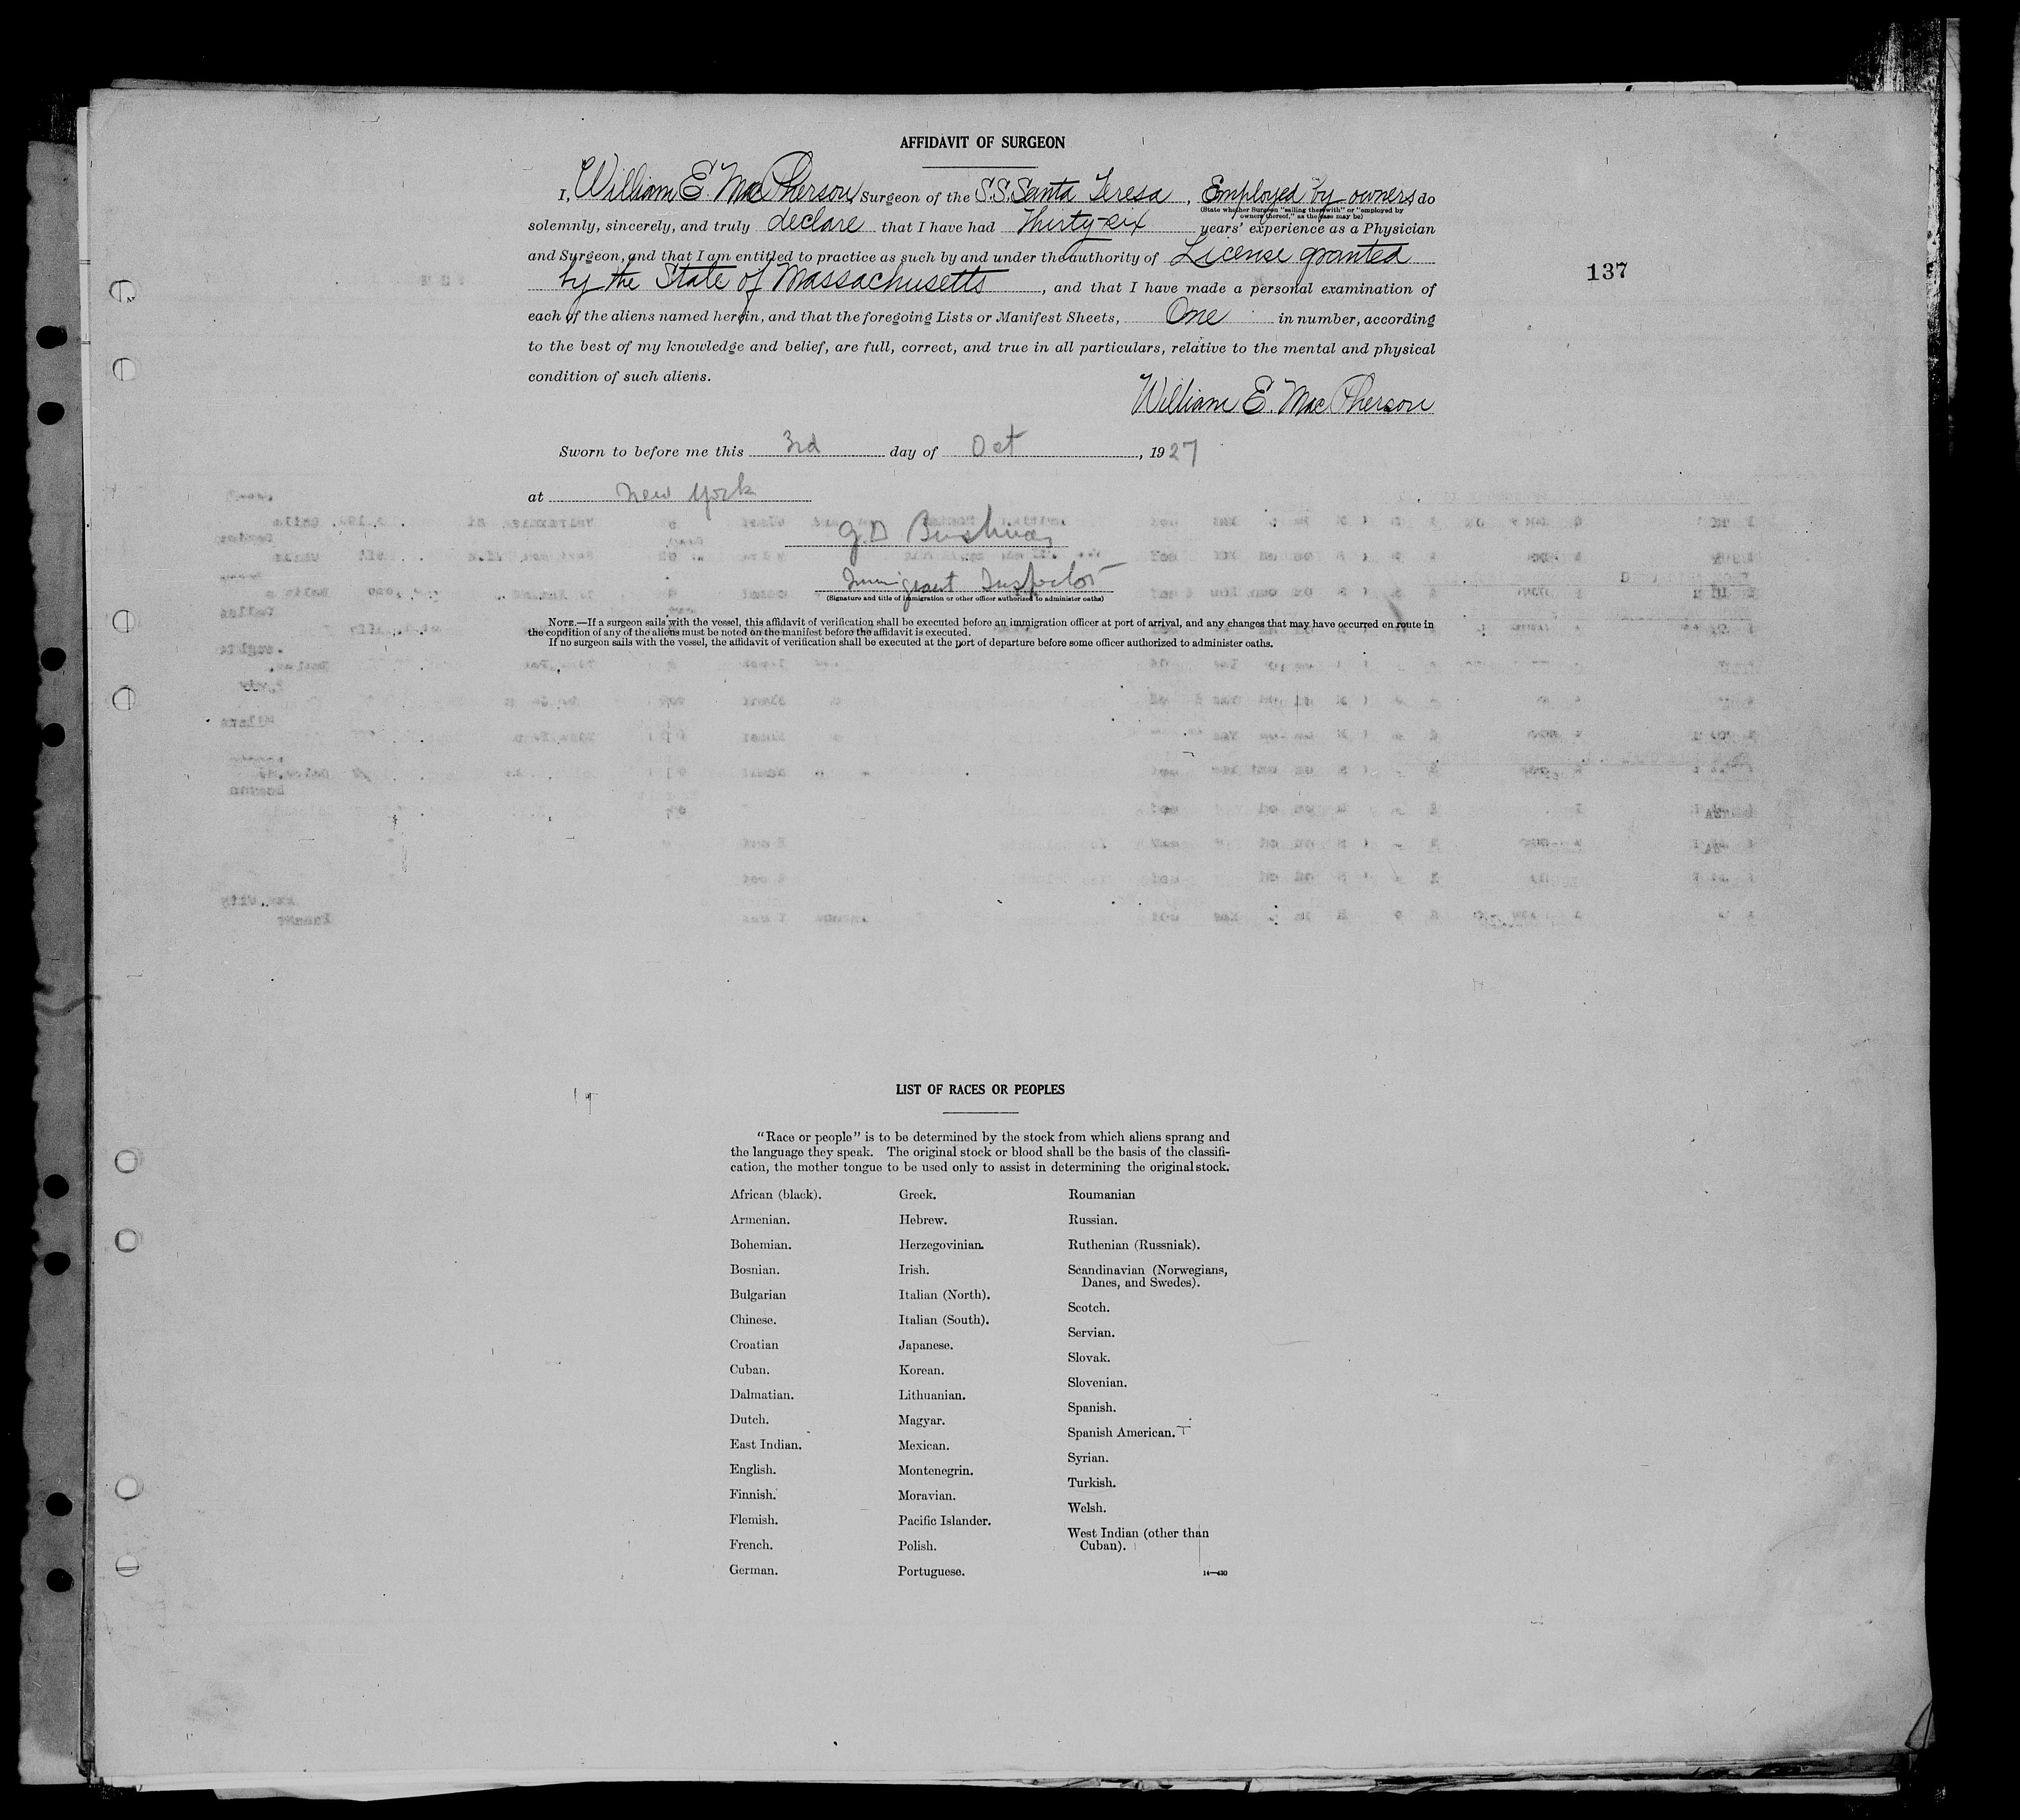 AFFIDAVIT OF SURGEON
I, William E. MacPherson, Surgeon of the S.S. Santa Teresa, Employed by owners do
(State whether Surgeon "sailing therewith" or "employed by
owners thereof," as the case may be)
solemnly, sincerely, and truly declare that I have had Thirty-six years' experience as a Physician
and Surgeon, and that I am entitled to practice as such by and under the authority of License granted
by the State of Massachusetts, and that I have made a personal examination of
137
each of the aliens named herein, and that the foregoing Lists or Manifest Sheets, One in number, according
to the best of my knowledge and belief, are full, correct, and true in all particulars, relative to the mental and physical
condition of such aliens.
William E. MacPherson
Sworn to before me this 3rd day of Oct, 1927
at New York
G. D.
Immigrant Inspector
(Signature and title of immigration or other officer authorized to administer oaths)
NOTE.—If a surgeon sails with the vessel, this affidavit of verification shall be executed before an immigration officer at port of arrival, and any changes that may have occurred en route in
the condition of any of the aliens must be noted on the manifest before the affidavit is executed.
If no surgeon sails with the vessel, the affidavit of verification shall be executed at the port of departure before some officer authorized to administer oaths.
LIST OF RACES OR PEOPLES
"Race or people" is to be determined by the stock from which aliens sprang and
the language they speak. The original stock or blood shall be the basis of the classifi-
cation, the mother tongue to be used only to assist in determining the original stock.
African (black).
Armenian.
Bohemian.
Bosnian.
Bulgarian
Chinese.
Croatian
Cuban.
Dalmatian.
Dutch.
East Indian.
English.
Finnish.
Flemish.
French.
German.
Greek.
Hebrew.
Herzegovinian.
Irish.
Italian (North).
Italian (South).
Japanese.
Korean.
Lithuanian.
Magyar.
Mexican.
Montenegrin.
Moravian.
Pacific Islander.
Polish.
Portuguese.
Roumanian
Russian.
Ruthenian (Russniak).
Scandinavian (Norwegians,
Danes, and Swedes).
Scotch.
Servian.
Slovak.
Slovenian.
Spanish.
Spanish American.
Syrian.
Turkish.
Welsh.
West Indian (other than
Cuban).
14—430